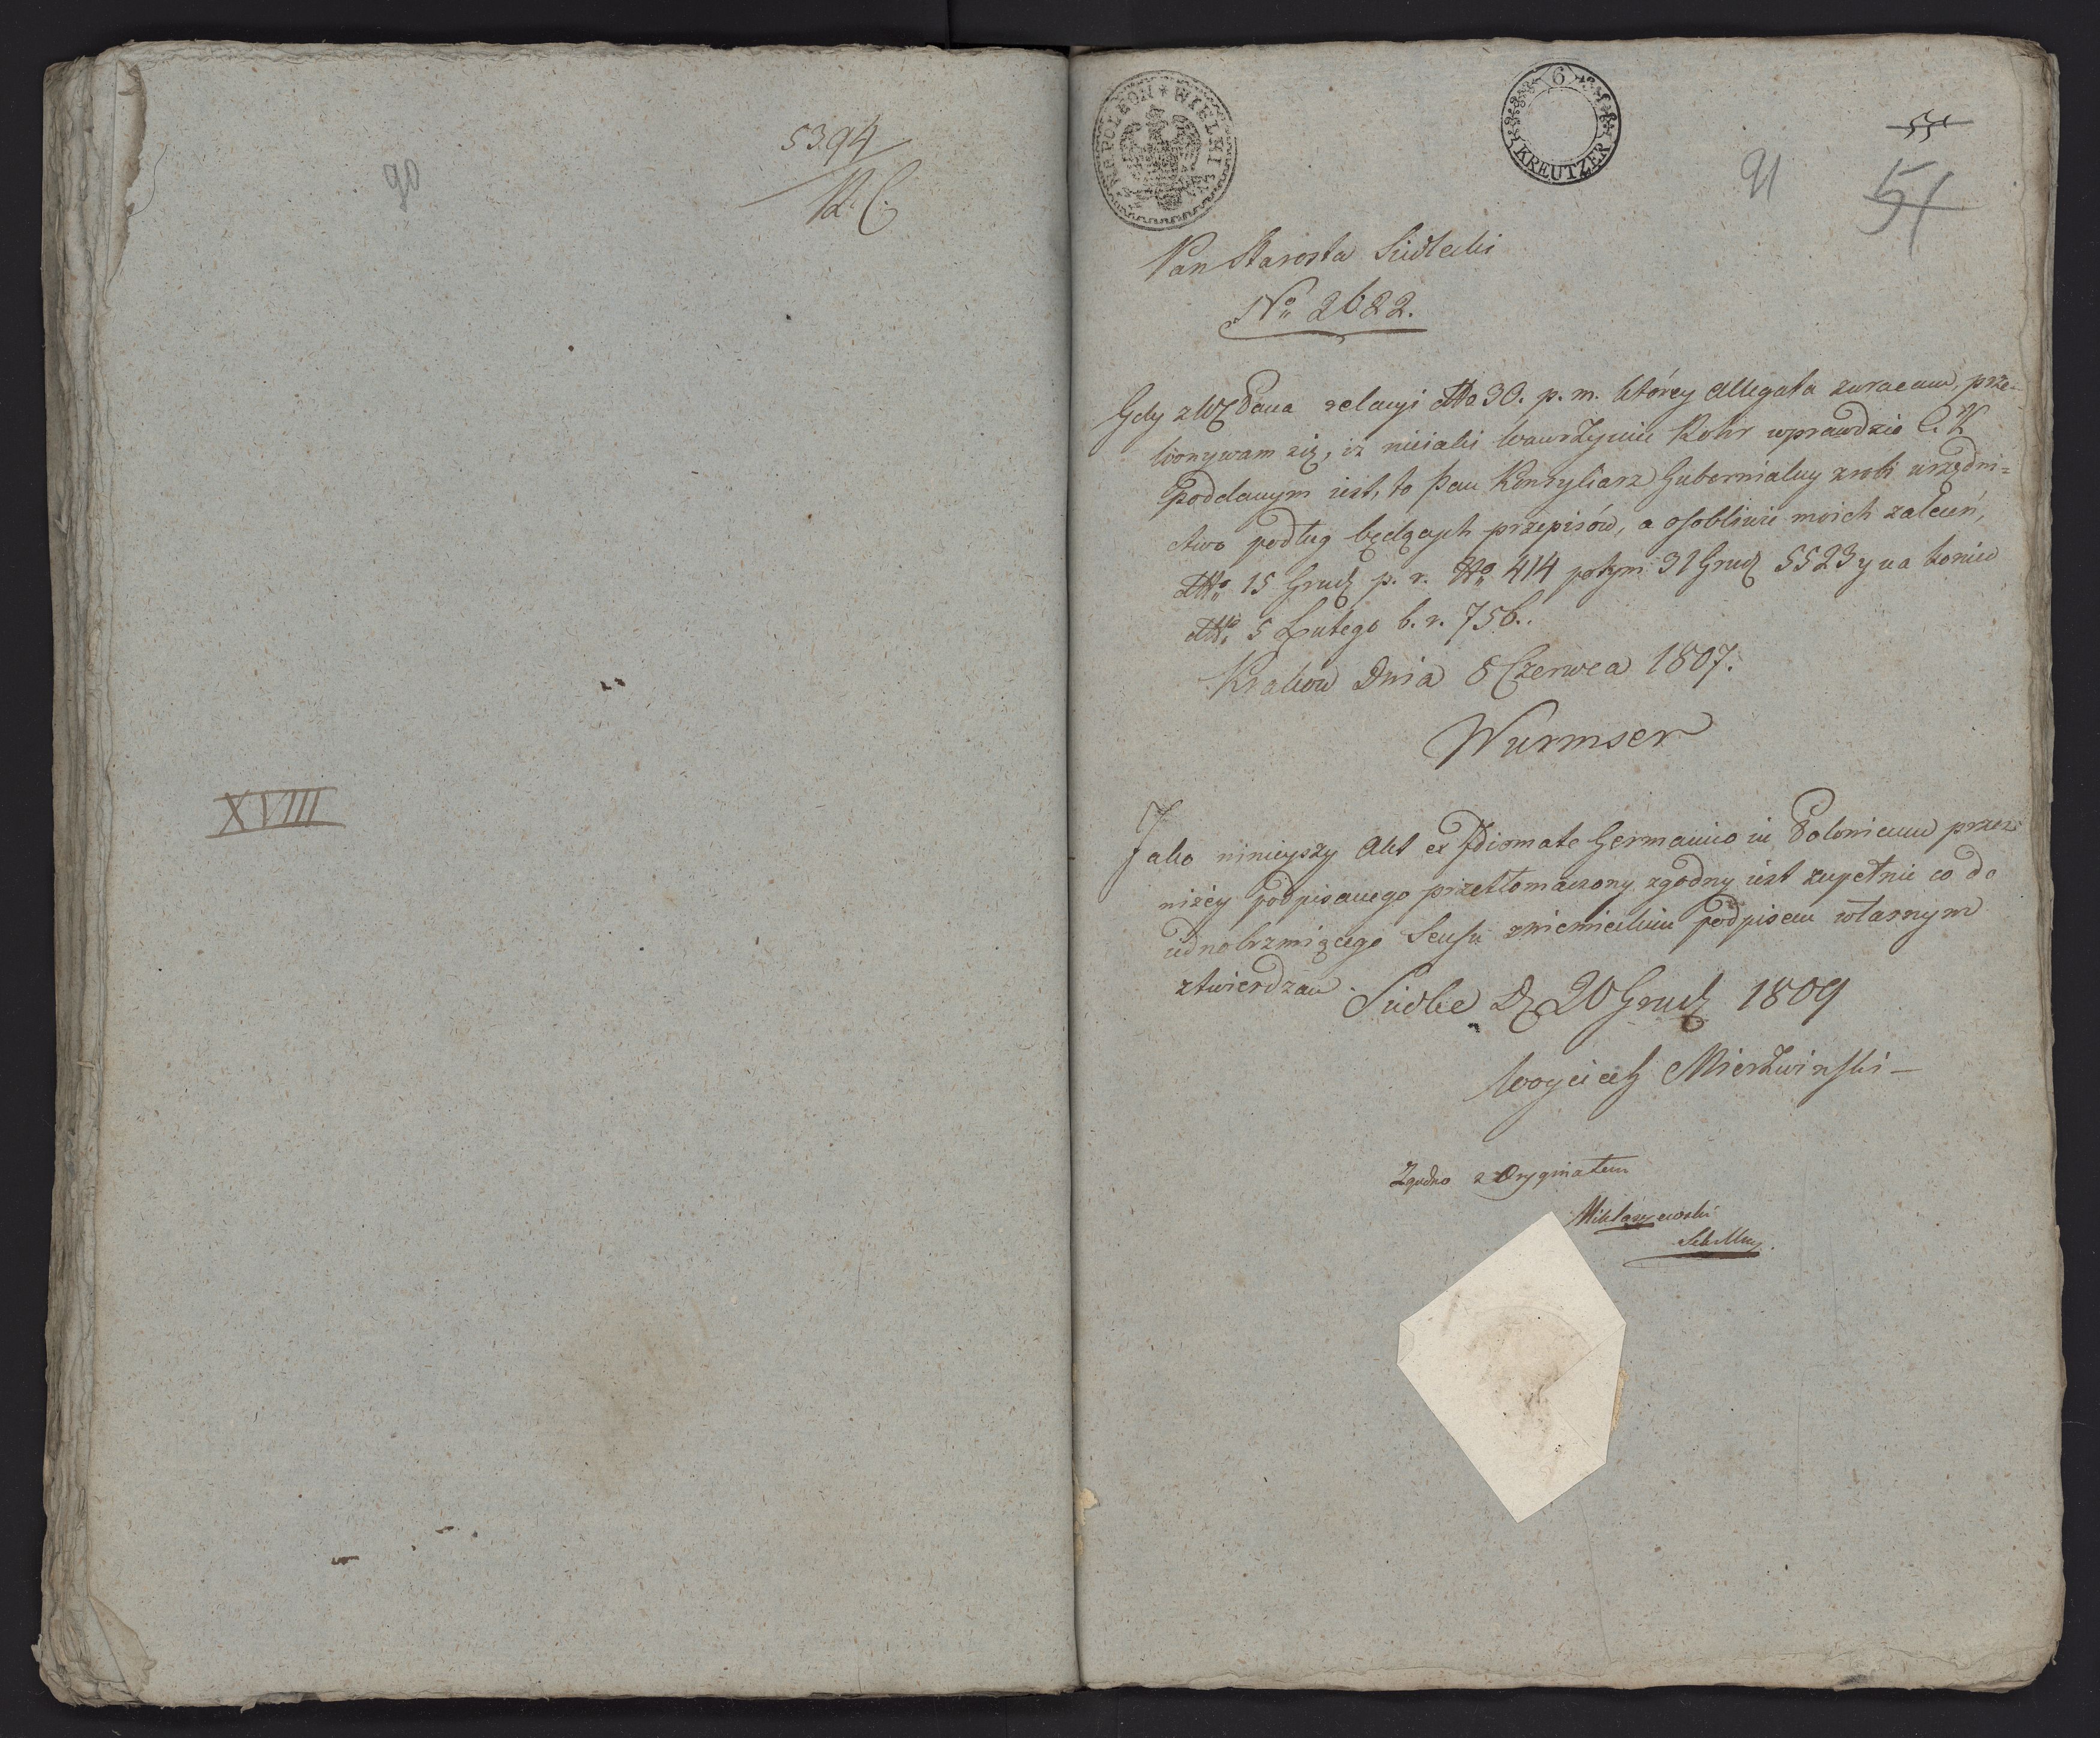 90
5394
R. C.
XVIII
NAPOLEON * WIELKI
6
KREUTZER
91
51
Pan Starosta Siedlecki
No 2682.
Gdy z WgPana relacyi dtto 30. p. m. którey Allegata zwracam, prze-
konywam się, iż nieiaki Wawrzyniec Rohr wprawdzie C. K
Poddanym iest, to Pan Konsyliarz Gubernialny zrobi urzędni=
ctwo podług będących przepisów, a osobliwie moich zaleceń,
dtto 15 Grud p. r. No 414 potym 31 Grud 5523 y na koniec
dtto 5 Lutego b. r. 756..
Krakow Dnia 8 Czerwca 1807.
Wurmser
Jako ninieyszy Akt ex Idiomate Germanico in Polonicum przez
niżéy podpisanego przetłomaczony zgodny iest zupełnie co do
iednobrzmiącego Sensu z niemieckim podpisem własnym
ztwierdzam. Siedlce D. 20 Grud 1809
Woyciech Mierzwinski
Zgodno z Oryginałem
Miklaszewski